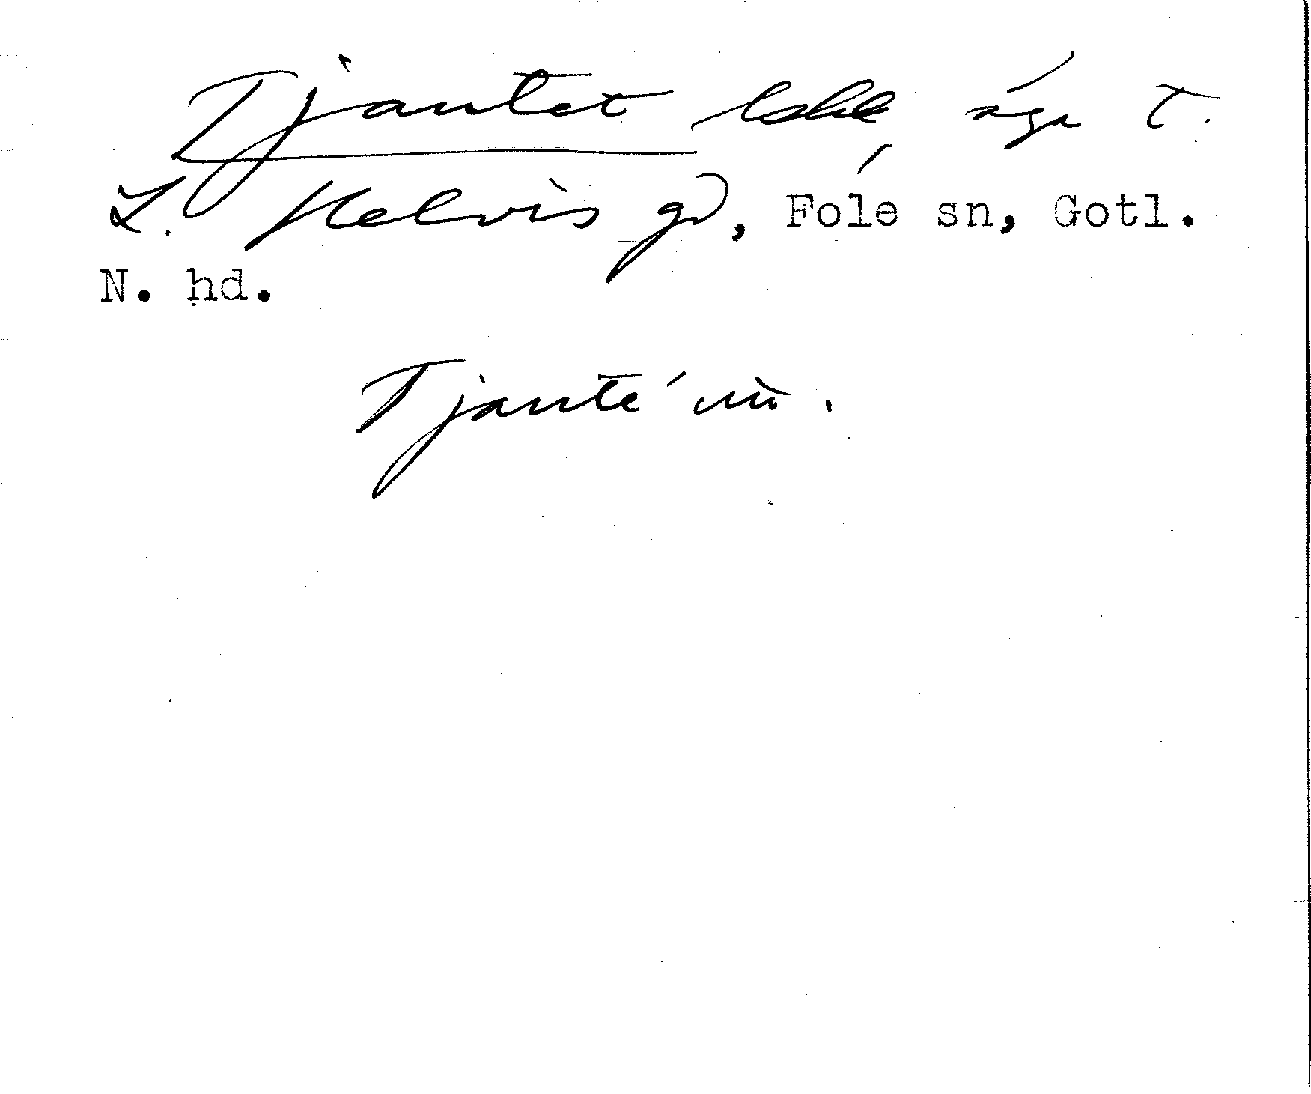 Tjautet äga t.
L. Kelvis gd, Fole sn, Gotl.
N. hd.
Tjauté